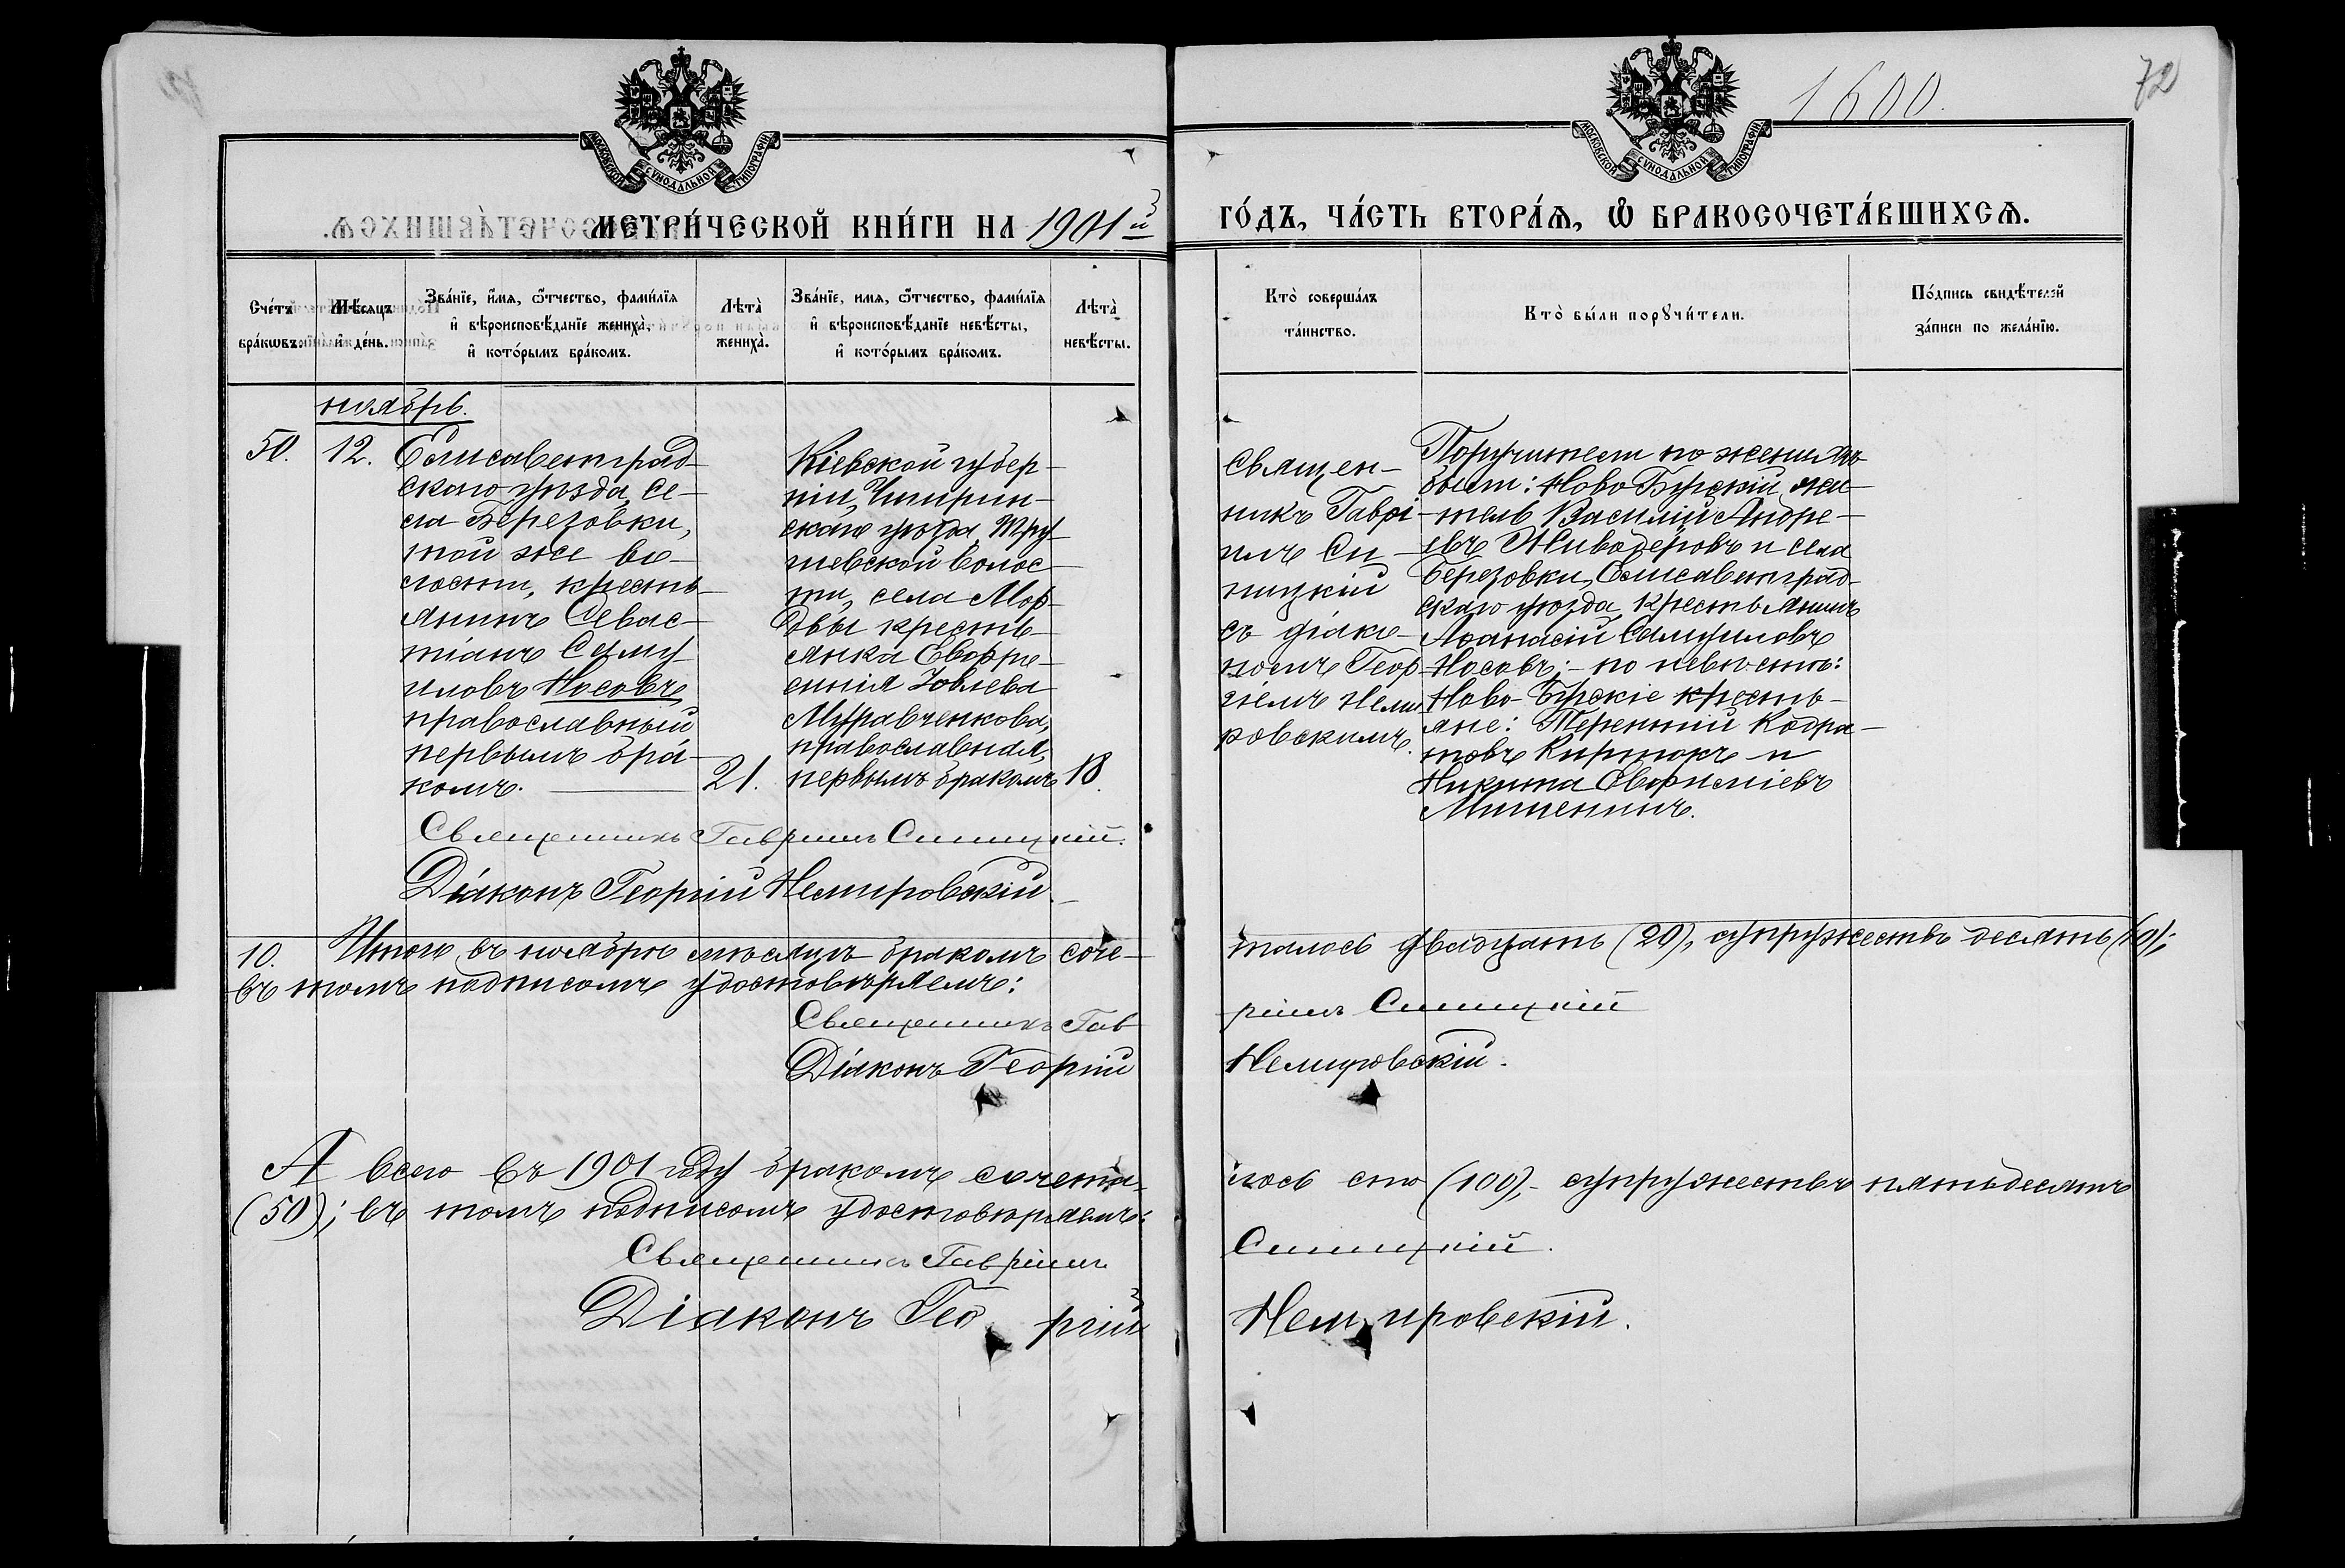 1600.
72
МОСКОВСКОЙ СѴНОДАЛЬНОЙ ТИПОГРАФІИ
МОСКОВСКОЙ СѴНОДАЛЬНОЙ ТИПОГРАФІИ
МЕТРИ́ЧЕСКОЙ КНИ́ГИ НА 1901й
ГО́ДЪ, ЧА́СТЬ ВТОРА́Ѧ, Ѽ БРАКОСОЧЕТА́ВШИХСѦ.
Сче́тъ бра́кѡвъ.
Мѣ́сяцъ и҆ де́нь.
Зва́нїе, и҆́мѧ, ѻ҆́тчество, фами́лїѧ
и҆ вѣроисповѣ́данїе жениха̀,
и҆ кото́рымъ бра́комъ.
Лѣта̀
жениха̀.
Зва́нїе, имѧ, ѻ҆́тчество, фами́лїѧ
и҆ вѣроисповѣ́данїе невѣ́сты,
и҆ кото́рымъ бра́комъ.
Лѣта̀
невѣ́сты.
Кто̀ соверша́лъ
та́инство.
Кто̀ бы́ли порꙋчи́тели.
По́дпись свидѣ́телей
за́писи по жела́нїю.
ноябрь.
50.
12.
Елисаветград-
скаго уѣзда, се-
ла Березовки,
той же во-
лости, кресть-
янинъ Севас-
тіанъ Саму-
иловъ Носовъ,
православный,
первымъ бра-
комъ.
21.
Кіевской губер-
ніи, Чигирин-
скаго уѣзда, Тру-
шевской волос-
ти, села Мор-
двы кресть-
янка Евфро-
синія Іовлева
Муравченкова,
православная,
первымъ бракомъ
18.
Священ-
никъ Гаврі-
илъ Си-
ницкій
съ діако-
номъ Геор-
гіемъ Неми-
ровскимъ.
Поручители по женихѣ
были: Ново Бугскій жи-
тель Василій Андре-
евъ Живодеровъ и села
Березовки, Елисаветград-
скаго уѣзда, крестьянинъ
Аѳанасій Самуиловъ
Носовъ; - по невѣстѣ:
Ново-Бугскіе кресть-
яне: Терентій Кодра-
товъ Киртокъ и
Никита Евфиміевъ
Мишенинъ.
Священникъ Гавріилъ Синицкій.
Діаконъ Георгій Немировскій.
10. Итого въ ноябрѣ мѣсяцѣ бракомъ соче-
талось двадцать (20), супружествъ десять (10);
въ томъ подписомъ удостовѣряемъ:
Священникъ Гав
ріилъ Синицкій
Діаконъ Георгій
Немировскій.
А всего въ 1901 году бракомъ сочета-
лось сто (100), - супружествъ пятьдесятъ
(50); въ томъ подписомъ удостовѣряемъ:
Священникъ Гавріилъ
Синицкій.
Діаконъ Гео ргій
Нем ировскій.